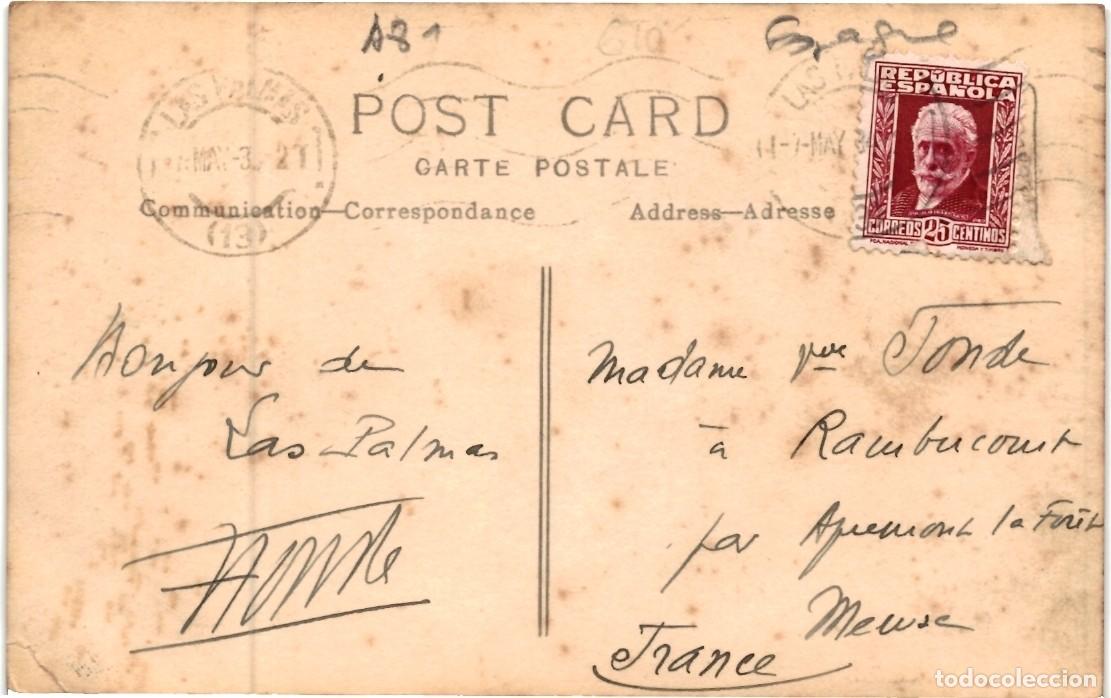 A81
610
Espagne
LAS PALMAS
MAY-3 21
(13)
POST CARD
CARTE POSTALE
LAS
7-MAY 3
REPÚBLICA
ESPAÑOLA
CORREOS 25 CENTIMOS
Communication—Correspondance
Address—Adresse
Bonjour de
Las Palmas
Tonde
Madame Vve Tonde
à Rambucourt
par Apremont la Forêt
Meuse
France
todocoleccion